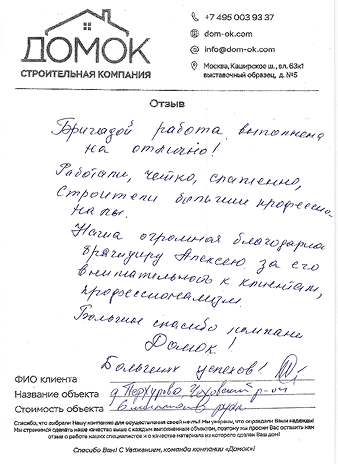 ДОМОК
СТРОИТЕЛЬНАЯ КОМПАНИЯ
+7 495 003 93 37
dom-ok.com
info@dom-ok.com
Москва, Каширское ш., вл.63к1
выставочный образец, д. №5
Отзыв
Бригадой работа выполнена
на отлично!
Работали, четко, слаженно,
Строители большие профессио-
налы.
Наша огромная благодарность
бригадиру Алексею за его
внимательность к клиентам,
профессионализм.
Большое спасибо компании
Домок!
Больших успехов!
ФИО клиента
Название объекта д. Перхурово, Чеховский р-он
Стоимость объекта 6 миллионов руб
Спасибо, что собрали Нашу компанию для осуществления своей мечты! Мы уверены, что оправдали Ваши надежды!
Мы стремимся сделать наше качество выше с каждым выполненным объектом, поэтому мы просим Вас оставить нам
отзыв о работе наших специалистов и о качестве материала из которого сделан Ваш дом!
Спасибо Вам! С Уважением, команда компании «Домок»!